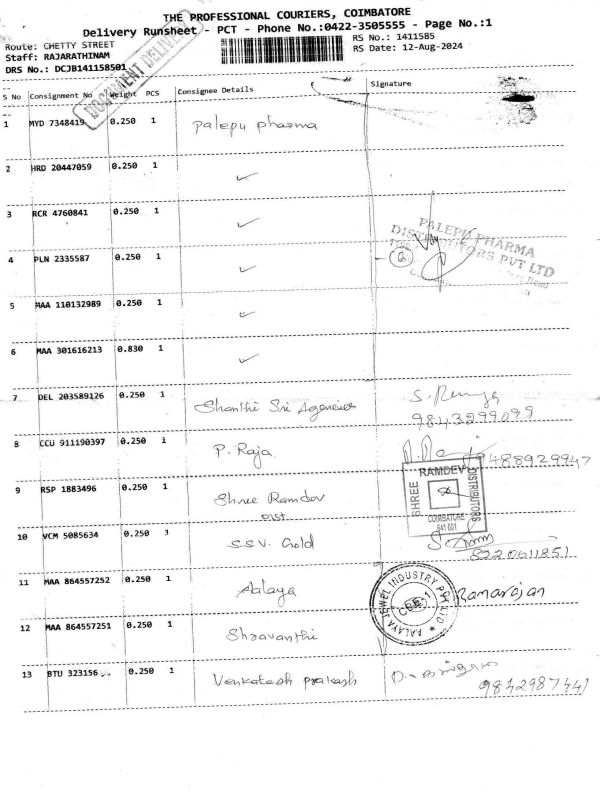 THE PROFESSIONAL COURIERS, COIMBATORE
Delivery Runsheet - PCT - Phone No.:0422-3505555 - Page No.:1
Route: CHETTY STREET
RS No.: 1411585
Staff: RAJARATHINAM
RS Date: 12-Aug-2024
DRS No.: DCJB141158501
DOCUMENT DELIVERY
S No Consignment No Weight PCS Consignee Details Signature
1 MYD 7348419 0.250 1 Palepu pharma
2 HRD 20447059 0.250 1 ✓
3 RCR 4760841 0.250 1 ✓
PALEPU PHARMA
DISTRIBUTORS PVT LTD
4 PLN 2335587 0.250 1 ✓
5 MAA 110132989 0.250 1 ✓
6 MAA 301616213 0.830 1 ✓
7 DEL 203589126 0.250 1 Shanthi Sri Agencies
9843299099
8 CCU 911190397 0.250 1 P. Raja
9 RSP 1883496 0.250 1 Shree Ramdev
Dist
SHREE RAMDEV DISTRIBUTORS
COIMBATORE
641 001
10 VCM 5085634 0.250 1 S.S.V. Gold
8220611851
11 MAA 864557252 0.250 1 Aalaya Ramarajan
AALAYA JEWEL INDUSTRY PVT LTD
CBE-1
12 MAA 864557251 0.250 1 Shravanthi
13 BTU 323156 0.250 1 Venkatesh prakash
9842987441